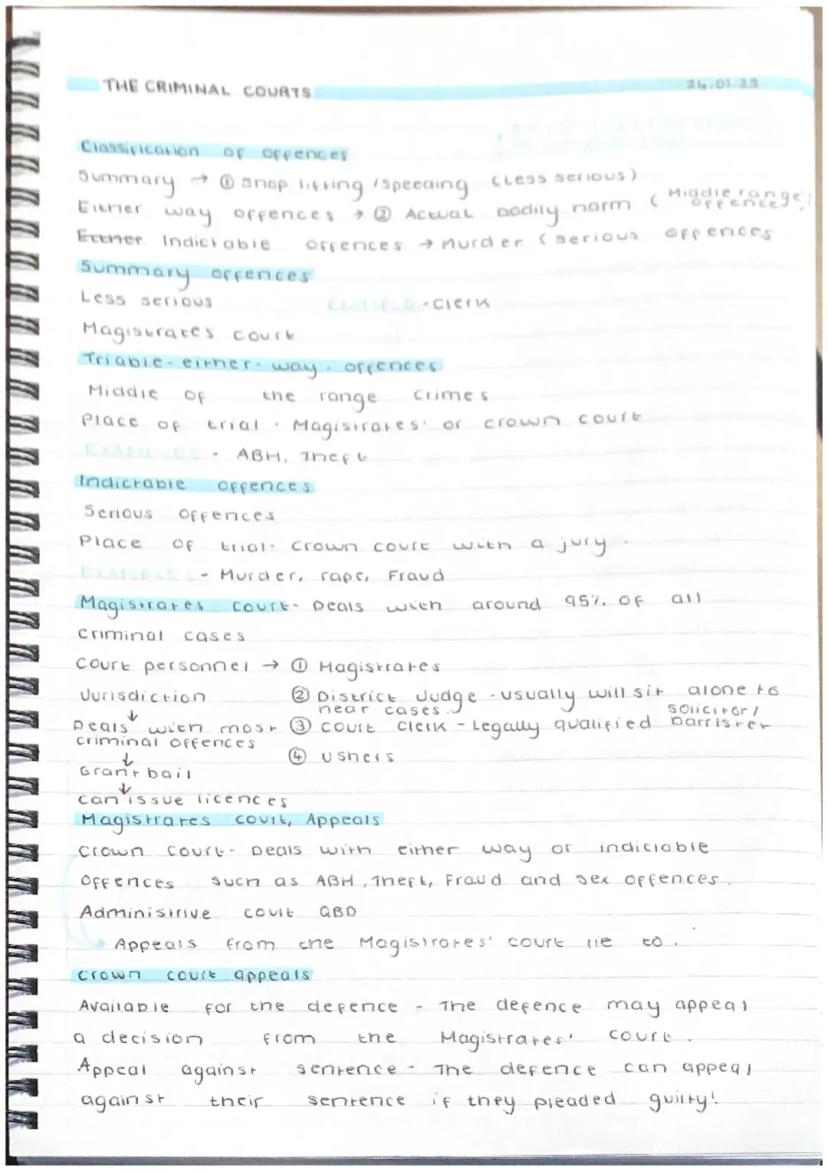 THE CRIMINAL COURTS 24.01.23
Classification of offences
Summary → ① Shop lifting / speeding (Less serious)
Either way offences → ② Actual bodily harm (Middle range offence)
Either Indictable offences → Murder (serious offences
Summary offences
Less serious EXAMPLE - Clerk
Magistrates court
Triable-either-way-offences
Middle of the range crimes
Place of trial - Magistrates' or crown court
EXAMPLES - ABH, Theft
Indictable offences
Serious offences
Place of trial - crown court with a jury.
EXAMPLES - Murder, rape, Fraud
Magistrates court - Deals with around 95% of all
criminal cases
Court personnel → ① Magistrates
Jurisdiction ② District Judge - usually will sit alone to
hear cases. solicitor/
Deals with most ③ court clerk - Legally qualified barrister
criminal offences
④ ushers
↓
Grant bail
↓
can issue licences
Magistrates court, Appeals
Crown court - Deals with either way or indictable
Offences such as ABH, Theft, Fraud and sex offences.
Administrive court QBD
Appeals from the Magistrates' court lie to.
Crown court appeals
Available for the defence - The defence may appeal
a decision from the Magistrates' court.
Appeal against sentence - The defence can appeal
against their sentence if they pleaded guilty!